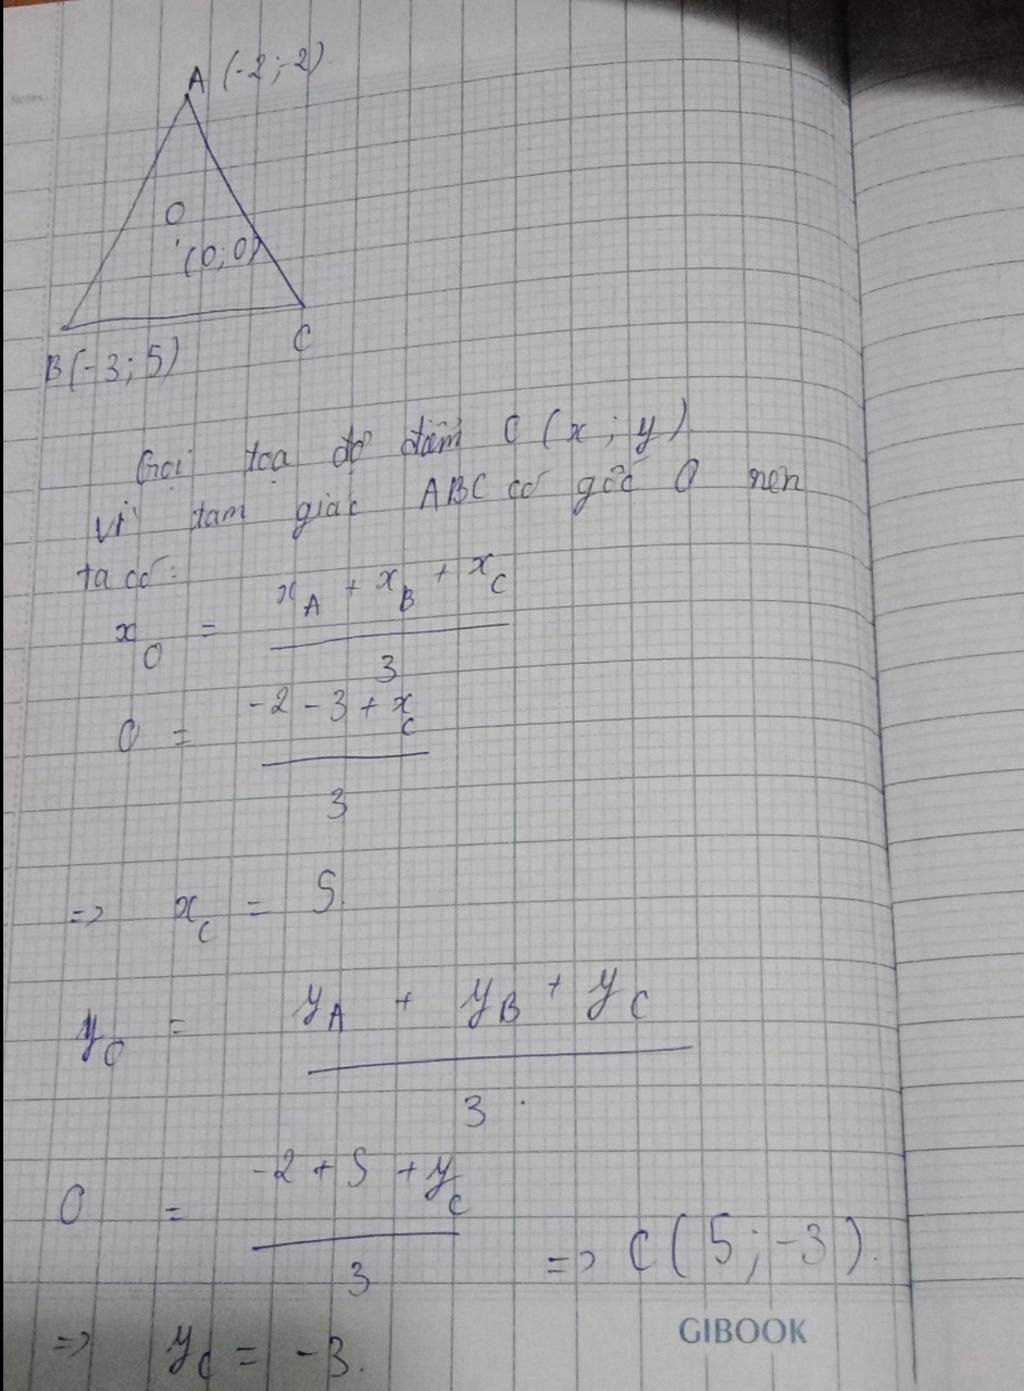 Notes
A (-2 ; -2).
O
(0 ; 0)
B (-3 ; 5)
C
Gọi tọa độ điểm C (x ; y)
Vì tam giác ABC có gốc O nên
ta có :
x_O = (x_A + x_B + x_C) / 3
0 = (-2 - 3 + x_C) / 3
=> x_C = 5.
y_O = (y_A + y_B + y_C) / 3.
0 = (-2 + 5 + y_C) / 3
=> C (5 ; -3).
=> y_C = -3.
GIBOOK